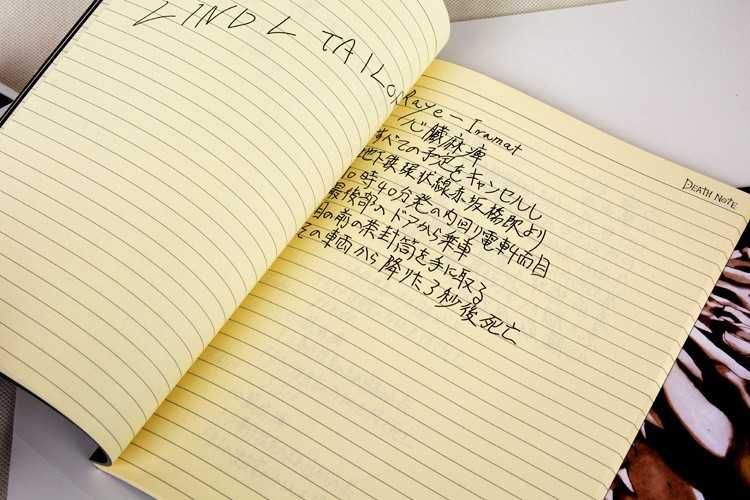 LIND L TAILOR
DEATH NOTE
Raye = Iramat
心臓麻痺
すべての予定をキャンセルし
地下鉄環状線赤坂橋駅より
10時40分発の内回り電車4両目
最後部のドアから乗車
目の前の茶封筒を手に取る
その車両から降りた3秒後死亡